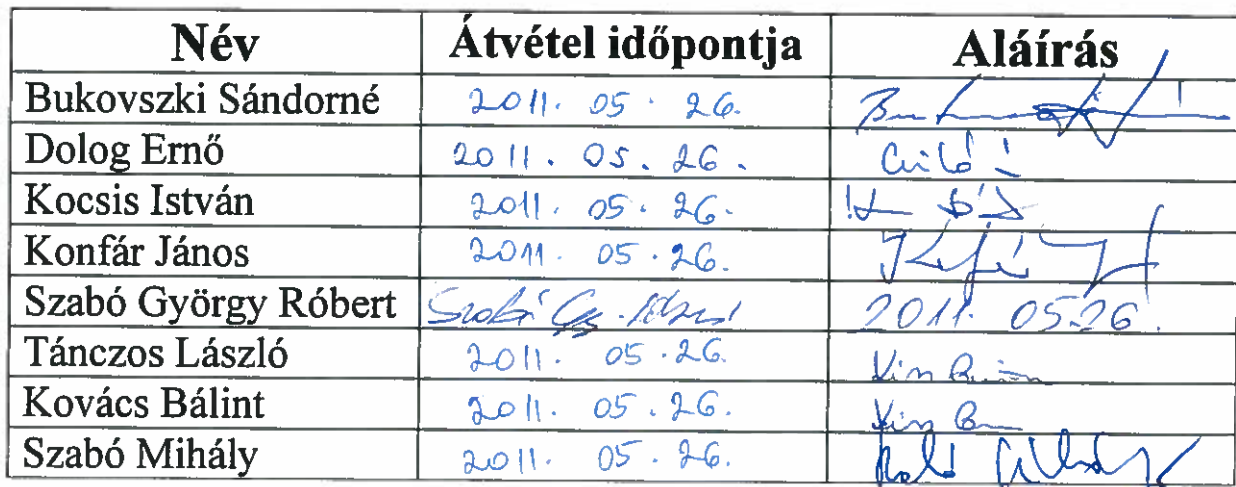 Név Átvétel időpontja Aláírás
Bukovszki Sándorné 2011. 05. 26.
Dolog Ernő 2011. 05. 26.
Kocsis István 2011. 05. 26.
Konfár János 2011. 05. 26.
Szabó György Róbert Szabó Gy. 2011. 05.26.
Tánczos László 2011. 05. 26.
Kovács Bálint 2011. 05. 26.
Szabó Mihály 2011. 05. 26.